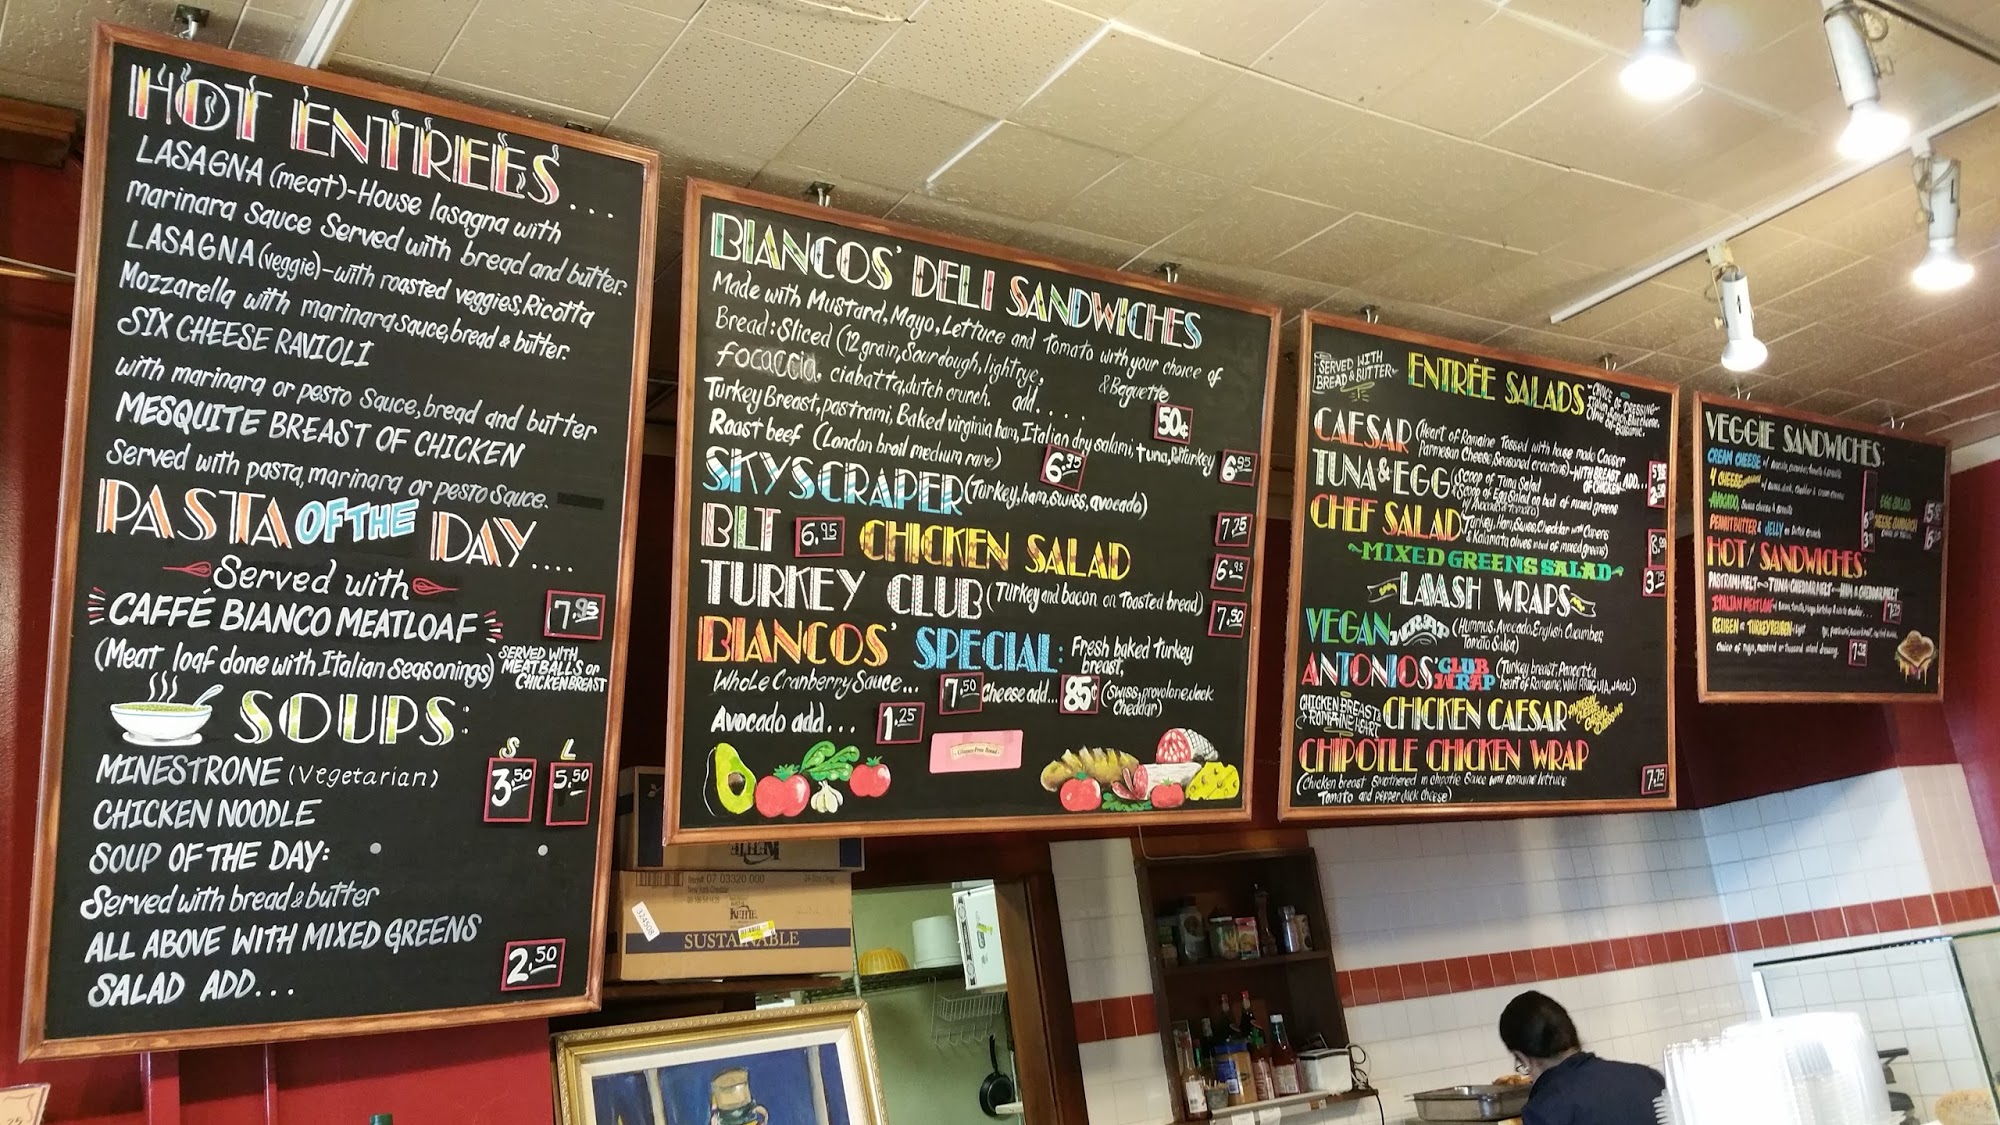 HOT ENTREES...
LASAGNA (meat)-House lasagna with
marinara Sauce Served with bread and butter.
LASAGNA (veggie)-with roasted veggies, Ricotta
Mozzarella with marinara sauce, bread & butter.
SIX CHEESE RAVIOLI
with marinara or pesto Sauce, bread and butter
MESQUITE BREAST OF CHICKEN
Served with pasta, marinara or pesto Sauce.
PASTA OF THE DAY....
Served with
CAFFÉ BIANCO MEATLOAF 7.95
(Meat loaf done with Italian seasonings)
SERVED WITH
MEATBALLS or
CHICKEN BREAST
SOUPS:
S L
MINESTRONE (Vegetarian) 3.50 5.50
CHICKEN NOODLE
SOUP OF THE DAY:
Served with bread & butter
ALL ABOVE WITH MIXED GREENS
SALAD ADD... 2.50
BIANCOS' DELI SANDWICHES
Made with Mustard, Mayo, Lettuce and Tomato with your choice of
Bread: Sliced (12 grain, Sourdough, light rye,
& Baguette
focaccia, ciabatta, dutch crunch. add.... 50¢
Turkey Breast, pastrami, Baked virginia ham, Italian dry salami, tuna, Turkey 6.95
Roast beef (London broil medium rare) 6.95
SKYSCRAPER (Turkey, ham, swiss, avocado) 7.25
BLT 6.95 CHICKEN SALAD 6.95
TURKEY CLUB (Turkey and bacon on Toasted bread) 7.50
BIANCOS' SPECIAL: Fresh baked Turkey
breast,
Whole Cranberry Sauce... 7.50 Cheese add... 85¢ (Swiss, provolone, Jack
Cheddar)
Avocado add... 1.25
Gluten Free Bread
SERVED WITH
BREAD & BUTTER
ENTRÉE SALADS
CHOICE OF DRESSING
CAESAR (Heart of Romaine Tossed with house made Caesar
Parmesan Cheese, Seasoned croutons)-WITH BREAST ADD...
OF CHICKEN
TUNA & EGG (Scoop of Tuna Salad
& Scoop of Egg Salad on bed of mixed greens
CHEF SALAD (Turkey, Ham, Swiss, Cheddar with Capers
& Kalamata olives on bed of mixed greens)
MIXED GREENS SALAD 3.75
LAVASH WRAPS
VEGAN WRAP (Hummus, Avocado, English Cucumber,
Tomato Salsa)
ANTONIOS' CLUB WRAP (Turkey breast, Pancetta
heart of Romaine, Wild ARUGULA, )
CHICKEN BREAST &
ROMAINE HEART
CHICKEN CAESAR
CHIPOTLE CHICKEN WRAP
(Chicken breast Smothered in chipotle Sauce with romaine lettuce
Tomato and pepper jack cheese) 7.75
VEGGIE SANDWICHES:
CREAM CHEESE
4 CHEESE
AVOCADO, Swiss cheese &
EGG SALAD
PEANUT BUTTER & JELLY on Dutch crunch
HOT SANDWICHES:
PASTRAMI MELT TUNA CHEDDAR MELT HAM & CHEDDAR MELT
ITALIAN MEATLOAF
REUBEN or TURKEY REUBEN
Choice of mayo, mustard or thousand island dressing.
07 03320 000
New York Cheddar
KETTLE
324508
SUSTAINABLE